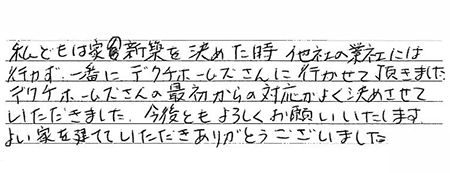 私どもは家の新築を決めた時 他社の業社には
行かず、一番にデクケホームズさんに行かせて頂きました
デクケホームズさんの最初からの対応がよく決めさせて
いただきました。今後ともよろしくお願いいたします。
よい家を建てていただきありがとうございました。